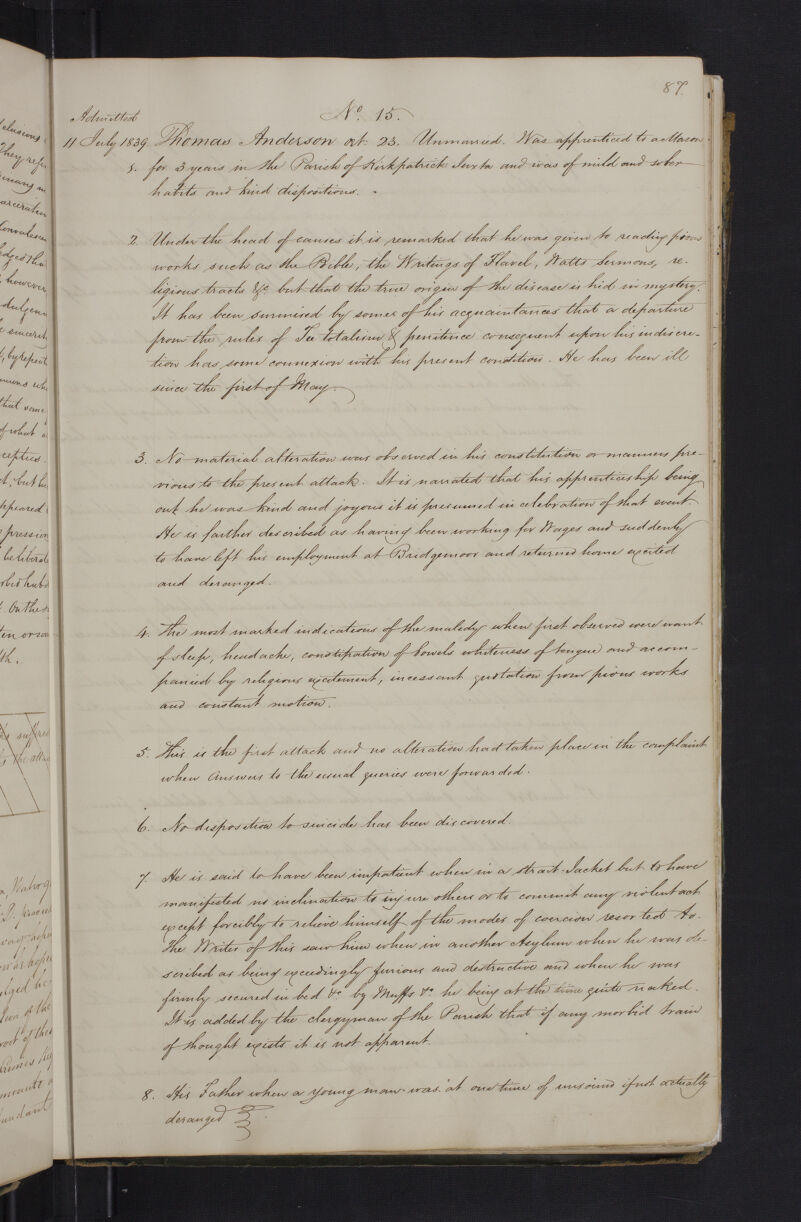 87.
Admitted
No. 15.
11 July 1839. Thomas Anderson æt. 23. Unmarried. Was apprenticed to a Mason
1. for 3 years in the Parish of Kirkpatrick Juxta and was of mild and sober
habits and kind dispositions.
2. Under the head of causes it is remarked that he was given to reading pious
works such as the Bible, the Writings of Flavel, Watts sermons, re-
ligious tracts &c but that the true origin of the disease is hid in mystery.
It has been surmised by some of his acquaintances that a departure
from the rules of Tee totalism & penitence consequent upon his indiscre-
tion has some connexion with his present condition. He has been ill
since the first of May.
3. No material alteration was observed in his constitution or manners pre-
vious to the present attack. It is narrated that his apprenticeship being
out he was kind and joyous it is presumed in celebration of that event.
He is farther described as having been working for Wages and suddenly
to have left his employment at Bridgemoor and returned home excited
and deranged.
4. The most marked indications of the malady when first observed were want
of sleep, headache, constipation of bowels whiteness of tongue and accom-
panied by religious excitement, incessant quotation from pious works
and constant motion.
5. This is the first attack and no alteration had taken place in the complaint
when Answers to the usual queries were forwarded.
6. No disposition to suicide has been discovered.
7. He is said to have been impatient when in a strait-Jacket but to have
manifested no inclination to injure others or to commit any violent act
except forcibly to relieve himself of the modes of coercion resorted to.
The Writer of this saw him when in another Asylum when he was de-
scribed as being exceedingly furious and destructive and when he was
firmly secured in bed &c by Muffs &c he being at the time quite naked.
It is added by the clergyman of the Parish that if any morbid train
of thought exists it is not apparent.
8. His Father when a young man was at one time of unsound if not actually
deranged